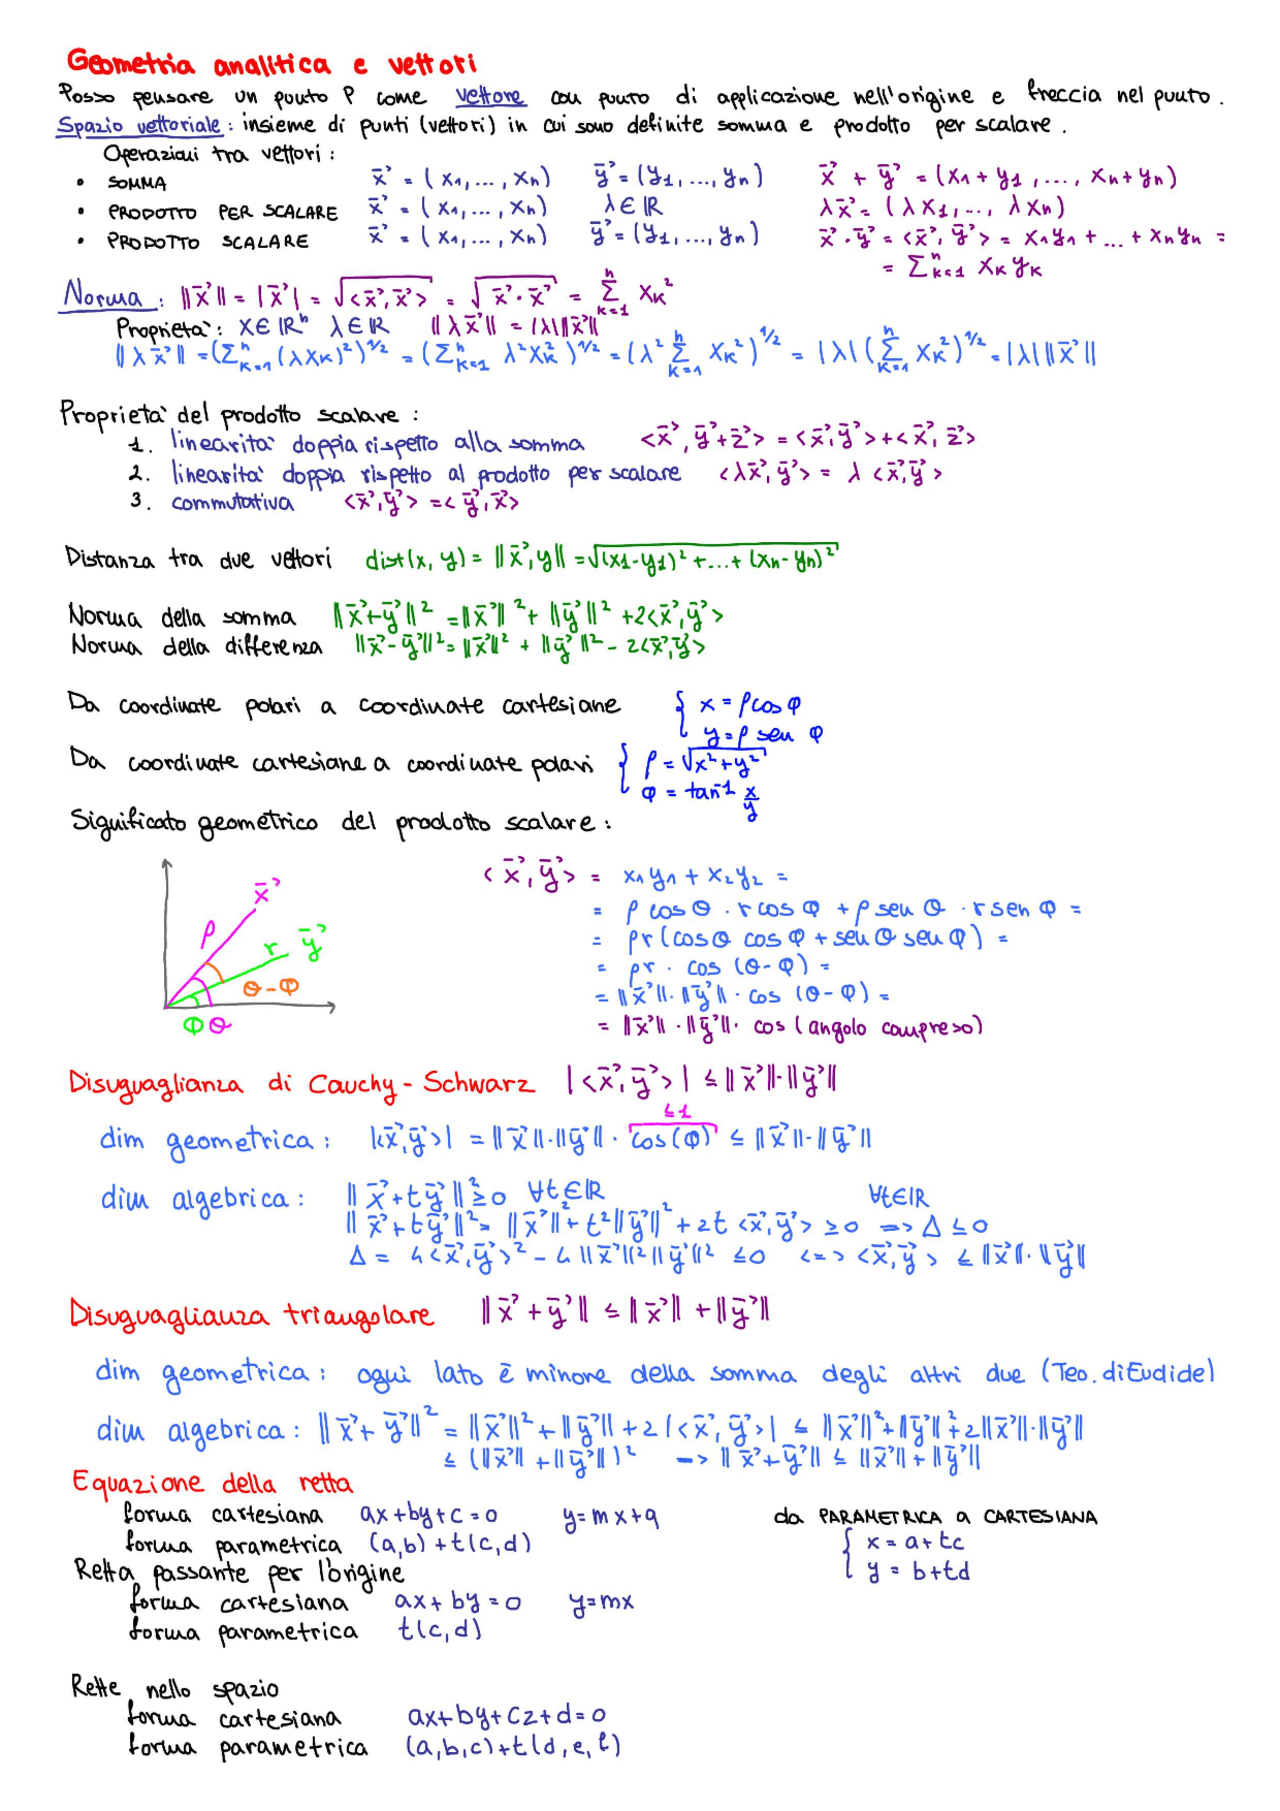 Geometria analitica e vettori
Posso pensare un punto P come vettore con punto di applicazione nell'origine e freccia nel punto.
Spazio vettoriale: insieme di punti (vettori) in cui sono definite somma e prodotto per scalare.
Operazioni tra vettori:
• SOMMA x⃗ = (x₁,...,xₙ) y⃗ = (y₁,...,yₙ) x⃗ + y⃗ = (x₁+y₁,...,xₙ+yₙ)
• PRODOTTO PER SCALARE x⃗ = (x₁,...,xₙ) λ∈ℝ λx⃗ = (λx₁,..., λxₙ)
• PRODOTTO SCALARE x⃗ = (x₁,...,xₙ) y⃗ = (y₁,...,yₙ) x⃗·y⃗ = <x⃗,y⃗> = x₁y₁+...+xₙyₙ =
= Σⁿₖ₌₁ xₖyₖ
Norma: ||x⃗|| = |x⃗| = √<x⃗,x⃗> = √x⃗·x⃗ = Σⁿₖ₌₁ xₖ²
Proprietà: x∈ℝⁿ λ∈ℝ ||λx⃗|| = |λ|||x⃗||
||λx⃗|| = (Σⁿₖ₌₁ (λxₖ)²)^1/2 = (Σⁿₖ₌₁ λ²xₖ²)^1/2 = (λ² Σⁿₖ₌₁ xₖ²)^1/2 = |λ| (Σⁿₖ₌₁ xₖ²)^1/2 = |λ| ||x⃗||
Proprietà del prodotto scalare:
1. linearità doppia rispetto alla somma <x⃗,y⃗+z⃗> = <x⃗,y⃗>+<x⃗,z⃗>
2. linearità doppia rispetto al prodotto per scalare <λx⃗,y⃗> = λ <x⃗,y⃗>
3. commutativa <x⃗,y⃗> = <y⃗,x⃗>
Distanza tra due vettori dist(x,y) = ||x⃗,y|| = √(x₁-y₁)²+...+(xₙ-yₙ)²
Norma della somma ||x⃗+y⃗||² = ||x⃗||² + ||y⃗||² + 2<x⃗,y⃗>
Norma della differenza ||x⃗-y⃗||² = ||x⃗||² + ||y⃗||² - 2<x⃗,y⃗>
Da coordinate polari a coordinate cartesiane { x = ρcos φ
y = ρ sen φ
Da coordinate cartesiane a coordinate polari { ρ = √x²+y²
φ = tan⁻¹ x/y
Significato geometrico del prodotto scalare:
x⃗
ρ
r y⃗
θ-φ
φ θ
<x⃗,y⃗> = x₁y₁ + x₂y₂ =
= ρ cosθ · r cos φ + ρ sen θ · r sen φ =
= ρr (cosθ cos φ + sen θ sen φ) =
= ρr · cos (θ-φ) =
= ||x⃗||·||y⃗|| · cos (θ-φ) =
= ||x⃗|| · ||y⃗|| · cos (angolo compreso)
Disuguaglianza di Cauchy-Schwarz |<x⃗,y⃗>| ≤ ||x⃗||·||y⃗||
≤1
dim geometrica: |<x⃗,y⃗>| = ||x⃗||·||y⃗|| · cos(φ) ≤ ||x⃗||·||y⃗||
dim algebrica: ||x⃗+ty⃗||² ≥ 0 ∀t∈ℝ ∀t∈ℝ
||x⃗+ty⃗||² = ||x⃗||² + t²||y⃗||² + 2t <x⃗,y⃗> ≥ 0 => Δ ≤ 0
Δ = 4<x⃗,y⃗>² - 4||x⃗||²||y⃗||² ≤ 0 <=> <x⃗,y⃗> ≤ ||x⃗||·||y⃗||
Disuguaglianza triangolare ||x⃗+y⃗|| ≤ ||x⃗|| + ||y⃗||
dim geometrica: ogni lato è minore della somma degli altri due (Teo. di Euclide)
dim algebrica: ||x⃗+y⃗||² = ||x⃗||² + ||y⃗|| + 2|<x⃗,y⃗>| ≤ ||x⃗||²+||y⃗||²+2||x⃗||·||y⃗||
≤ (||x⃗||+||y⃗||)² -> ||x⃗+y⃗|| ≤ ||x⃗||+||y⃗||
Equazione della retta
forma cartesiana ax+by+c=0 y=mx+q da PARAMETRICA a CARTESIANA
forma parametrica (a,b)+t(c,d) { x = a+tc
Retta passante per l'origine y = b+td
forma cartesiana ax+by=0 y=mx
forma parametrica t(c,d)
Rette nello spazio
forma cartesiana ax+by+cz+d=0
forma parametrica (a,b,c)+t(d,e,f)